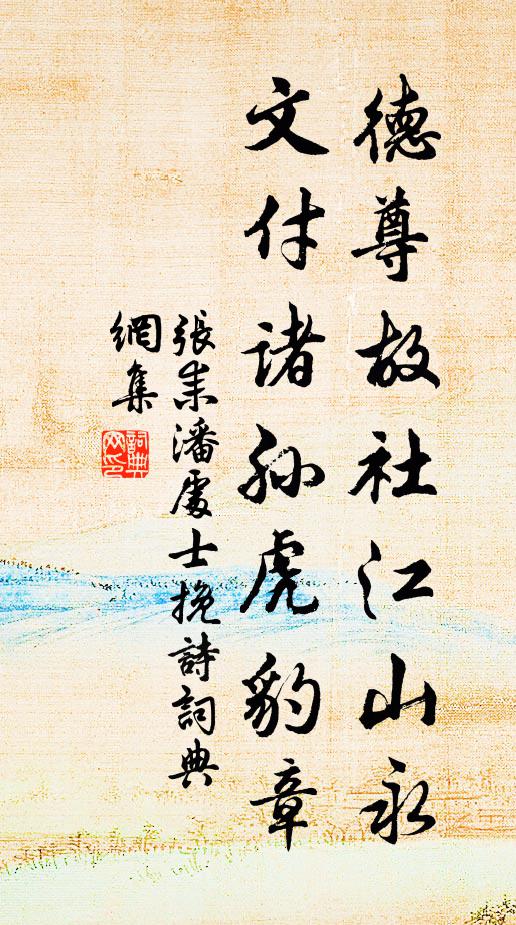 德尊故社江山永
文付诸孙虎豹章
張耒潘處士挽詩詞典
網集
詞典
网印